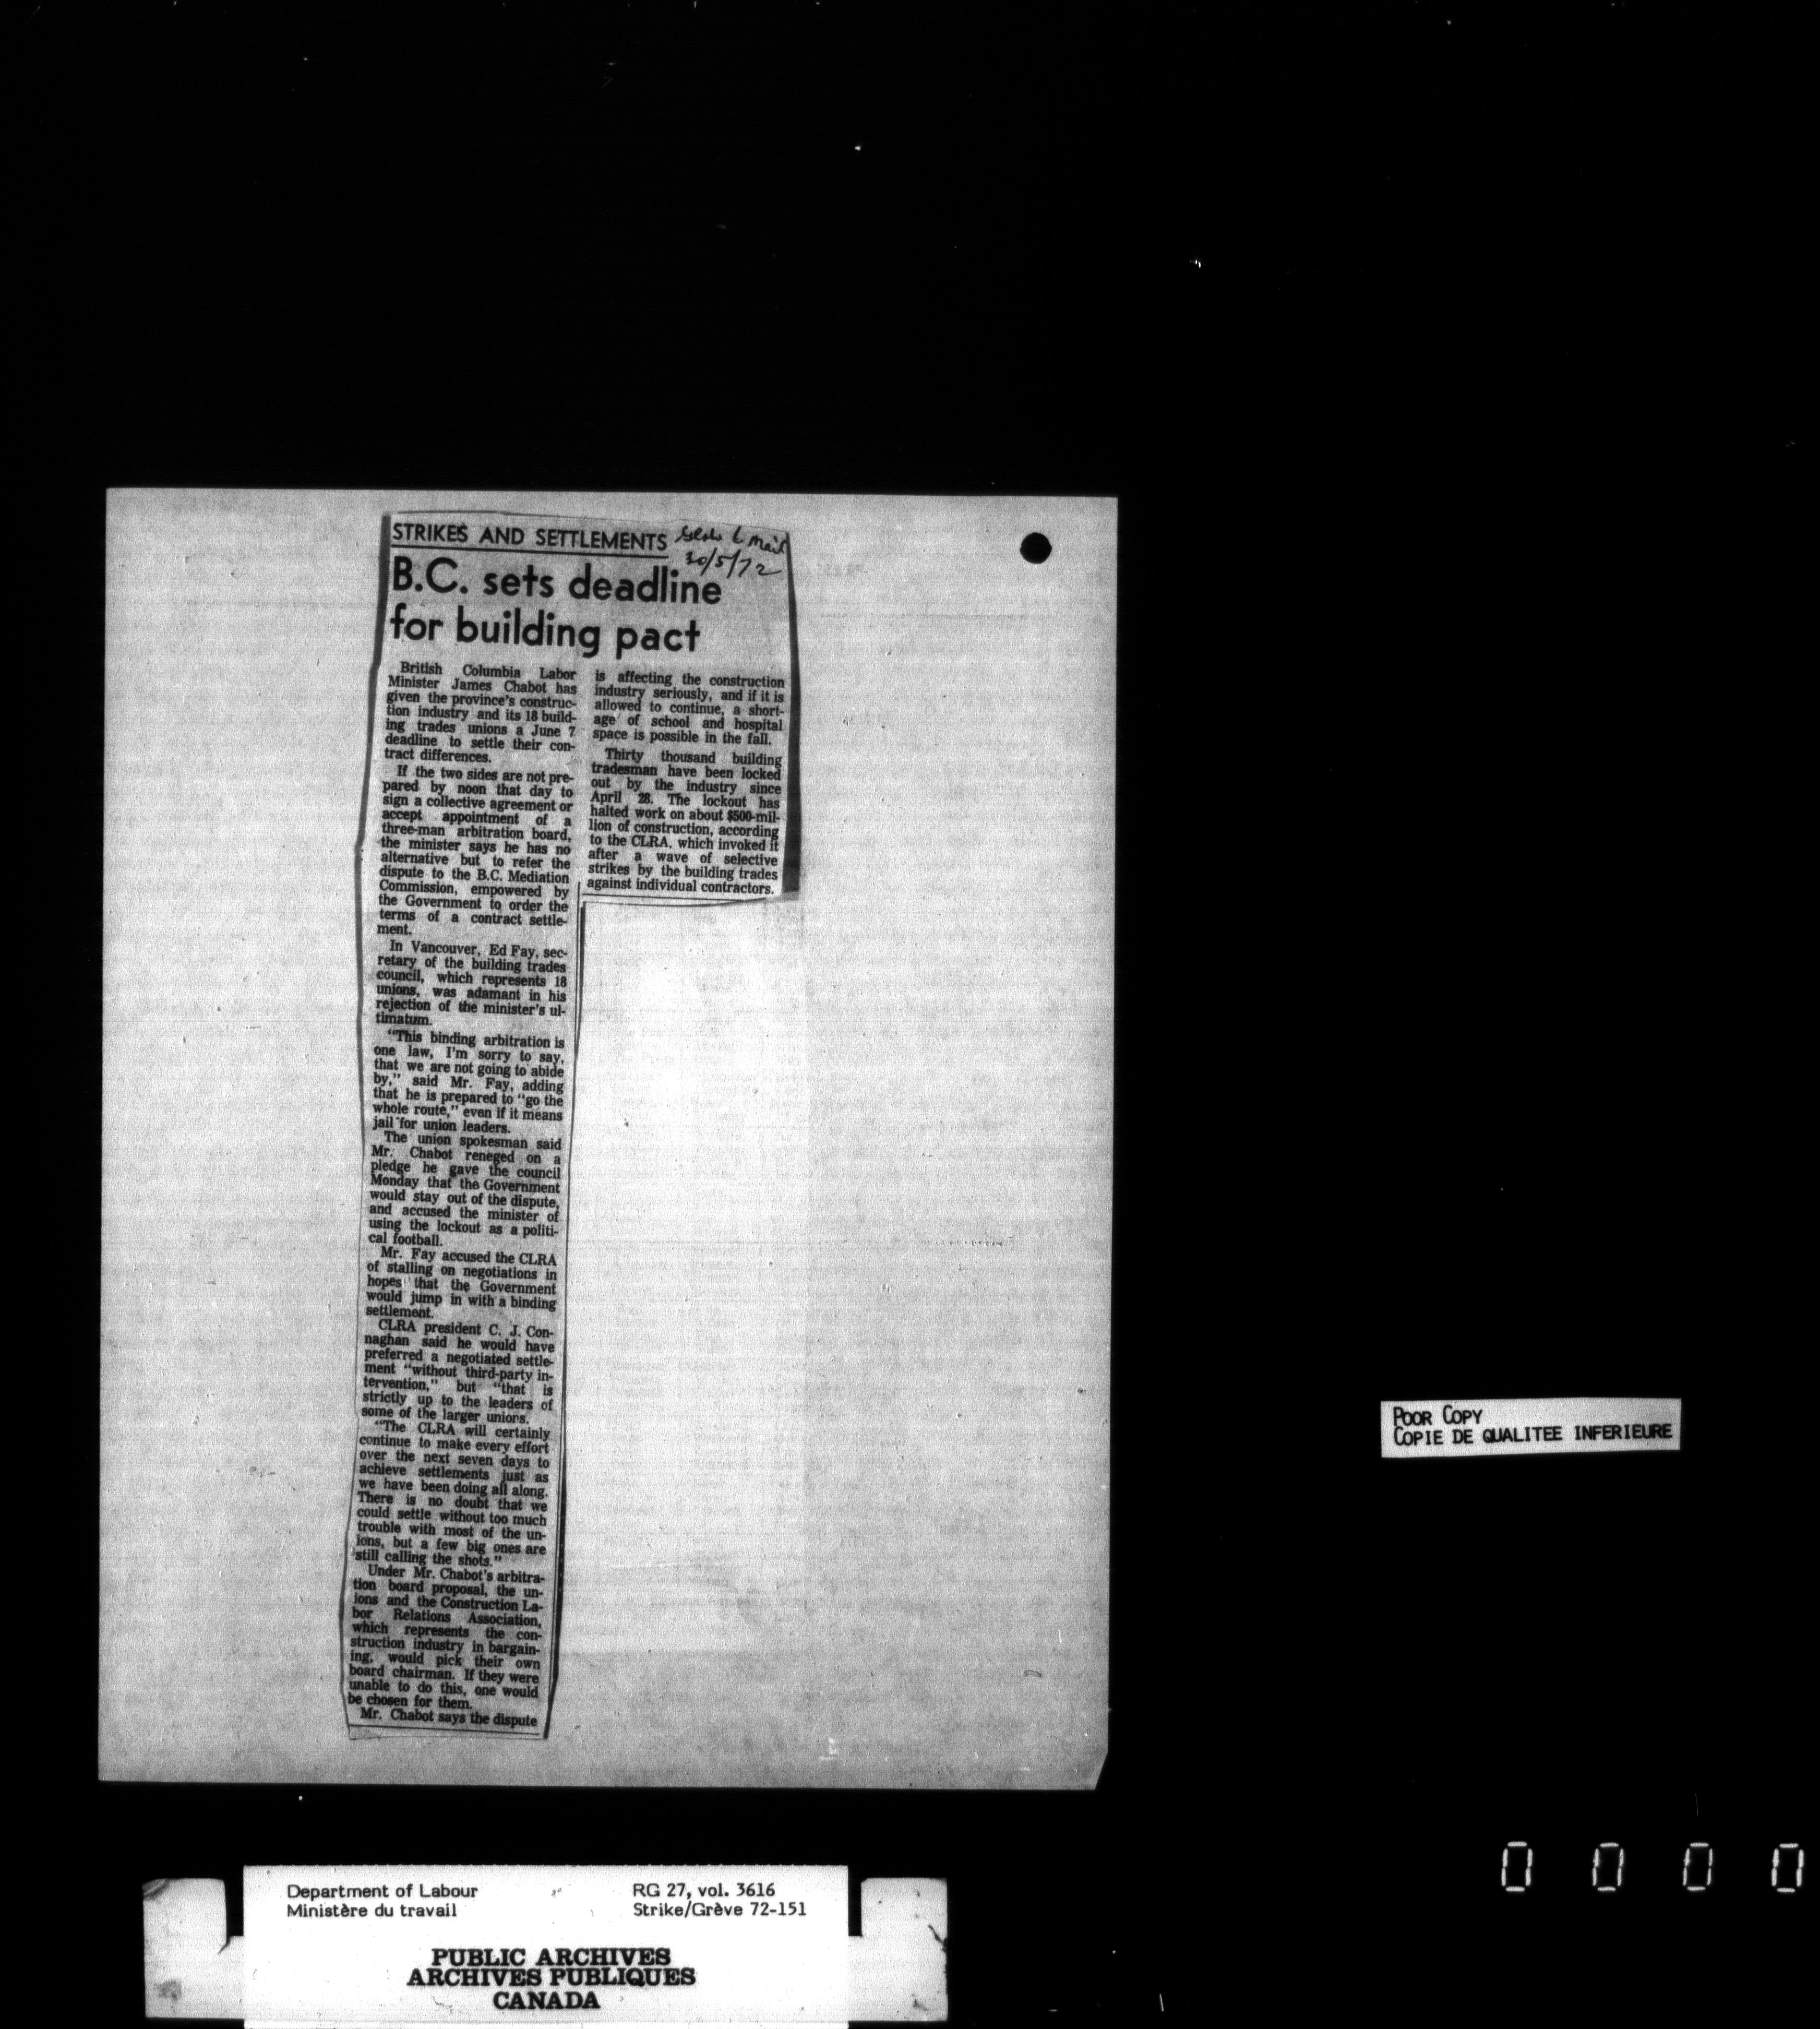 STRIKES AND SETTLEMENTS
Globe & Mail
30/5/72
B.C. sets deadline
for building pact
British Columbia Labor
Minister James Chabot has
given the province's construc-
tion industry and its 18 build-
ing trades unions a June 7
deadline to settle their con-
tract differences.
If the two sides are not pre-
pared by noon that day to
sign a collective agreement or
accept appointment of a
three-man arbitration board,
the minister says he has no
alternative but to refer the
dispute to the B.C. Mediation
Commission, empowered by
the Government to order the
terms of a contract settle-
ment.
In Vancouver, Ed Fay, sec-
retary of the building trades
council, which represents 18
unions, was adamant in his
rejection of the minister's ul-
timatum.
"This binding arbitration is
one law, I'm sorry to say,
that we are not going to abide
by," said Mr. Fay, adding
that he is prepared to "go the
whole route," even if it means
jail for union leaders.
The union spokesman said
Mr. Chabot reneged on a
pledge he gave the council
Monday that the Government
would stay out of the dispute,
and accused the minister of
using the lockout as a politi-
cal football.
Mr. Fay accused the CLRA
of stalling on negotiations in
hopes that the Government
would jump in with a binding
settlement.
CLRA president C. J. Con-
naghan said he would have
preferred a negotiated settle-
ment "without third-party in-
tervention," but "that is
strictly up to the leaders of
some of the larger unions.
"The CLRA will certainly
continue to make every effort
over the next seven days to
achieve settlements just as
we have been doing all along.
There is no doubt that we
could settle without too much
trouble with most of the un-
ions, but a few big ones are
still calling the shots."
Under Mr. Chabot's arbitra-
tion board proposal, the un-
ions and the Construction La-
bor Relations Association,
which represents the con-
struction industry in bargain-
ing, would pick their own
board chairman. If they were
unable to do this, one would
be chosen for them.
Mr. Chabot says the dispute
is affecting the construction
industry seriously, and if it is
allowed to continue, a short-
age of school and hospital
space is possible in the fall.
Thirty thousand building
tradesman have been locked
out by the industry since
April 28. The lockout has
halted work on about $500-mil-
lion of construction, according
to the CLRA, which invoked it
after a wave of selective
strikes by the building trades
against individual contractors.
POOR COPY
COPIE DE QUALITEE INFERIEURE
0 0 0 0
Department of Labour
Ministère du travail
RG 27, vol. 3616
Strike/Grève 72-151
PUBLIC ARCHIVES
ARCHIVES PUBLIQUES
CANADA